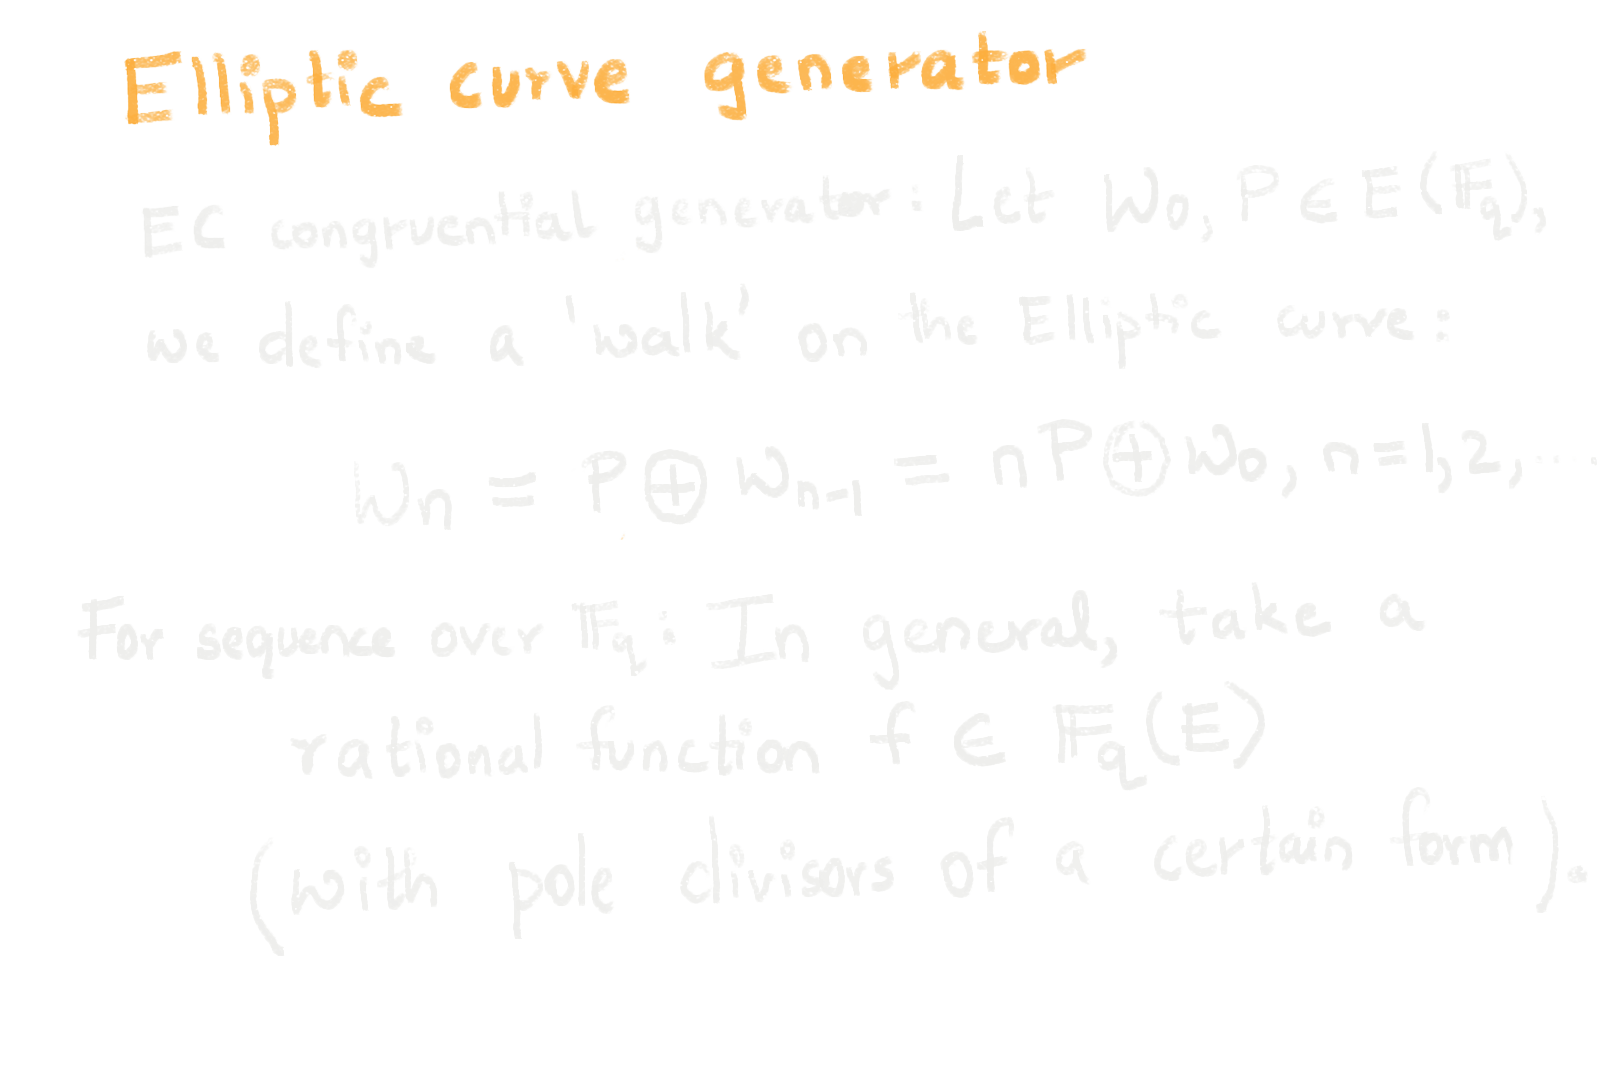 Elliptic curve generator
EC congruential generator: Let W₀, P ∈ E(𝔽q),
we define a 'walk' on the Elliptic curve:
Wn = P ⊕ Wn-1 = nP ⊕ W₀, n=1,2,....
For sequence over 𝔽q: In general, take a
rational function f ∈ 𝔽q(E)
(with pole divisors of a certain form).